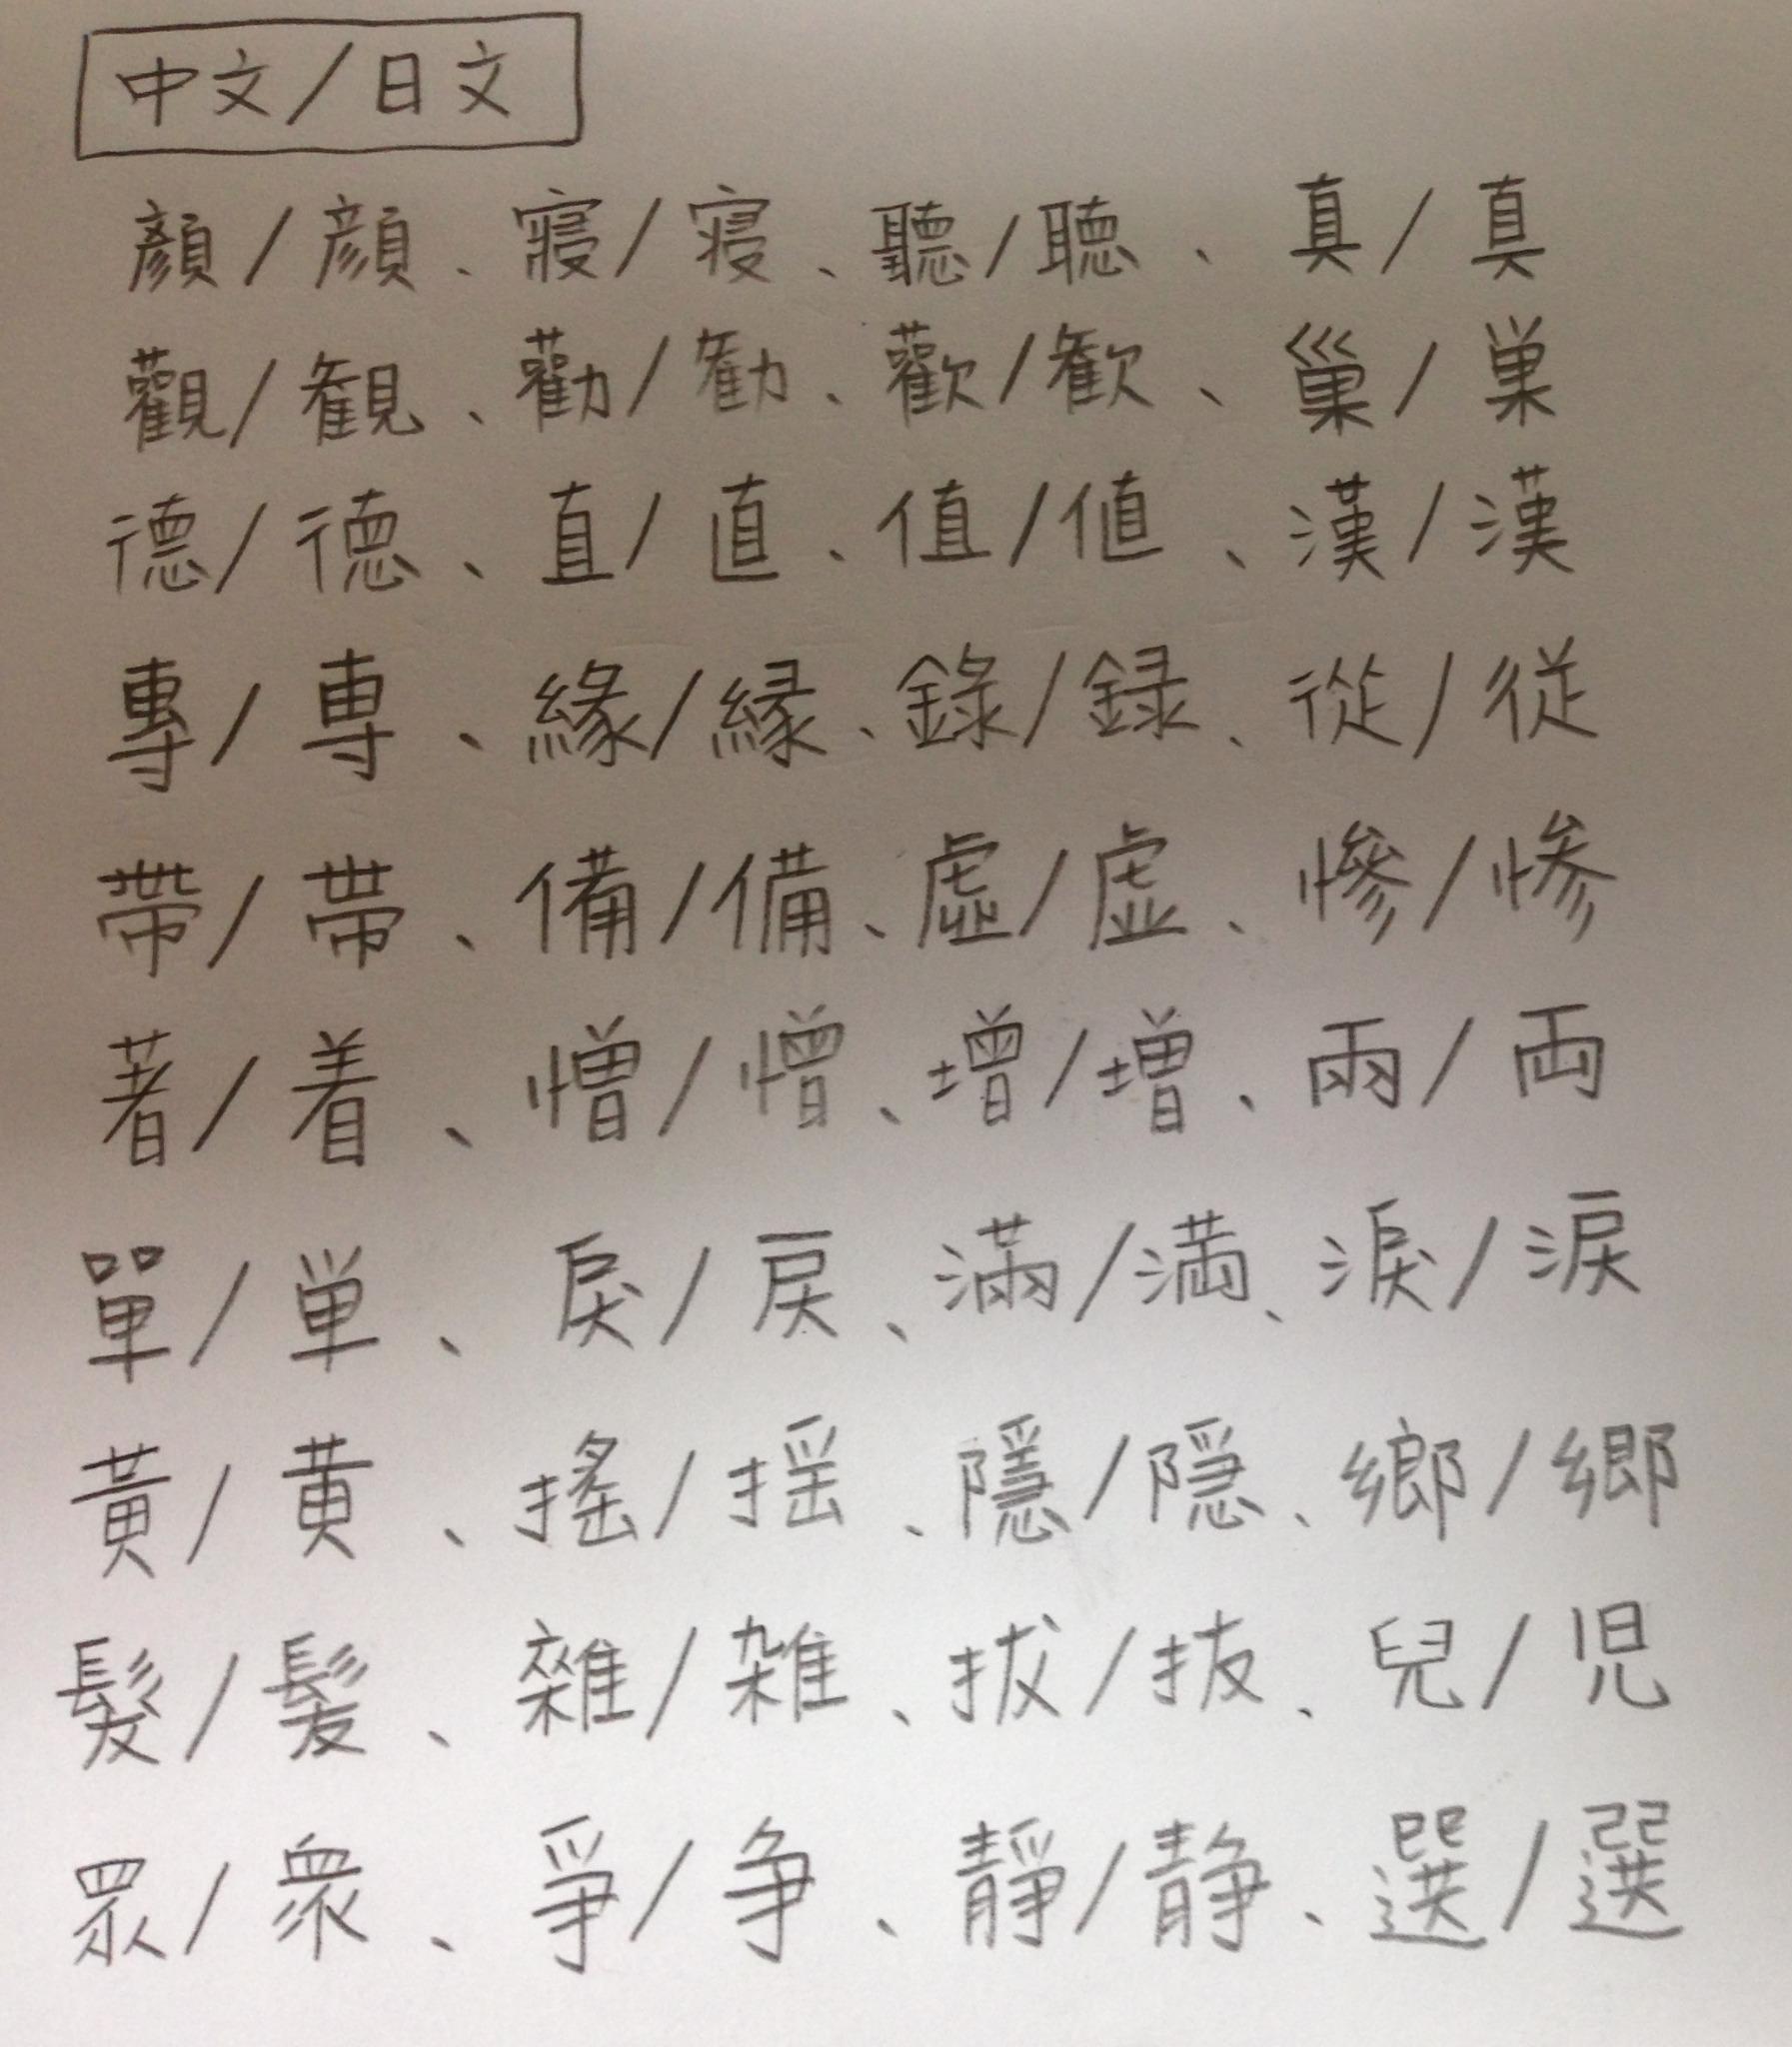 中文/日文
顏/顔、寢/寝、聽/聴、真/真
觀/観、勸/勧、歡/歓、巢/巣
德/徳、直/直、值/値、漢/漢
專/専、緣/縁、錄/録、從/従
帶/帯、備/備、虛/虚、慘/惨
著/着、憎/憎、增/増、兩/両
單/単、戾/戻、滿/満、淚/涙
黃/黄、搖/揺、隱/隠、鄉/郷
髮/髪、雜/雑、拔/抜、兒/児
眾/衆、爭/争、靜/静、選/選